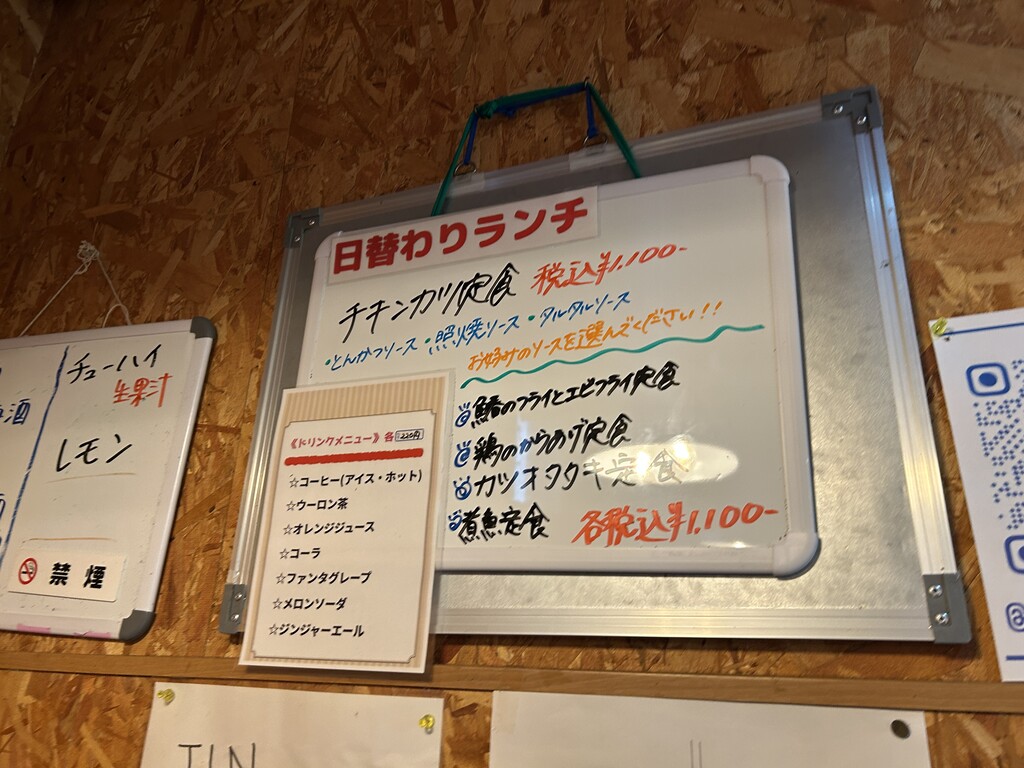 日替わりランチ
チキンカツ定食 税込¥1.100-
・とんかつソース・照焼ソース・タルタルソース
お好みのソースを選んでください!!
鯵のフライとエビフライ定食
鶏のからあげ定食
カツオタタキ定食
煮魚定食 各税込¥1.100-
《ドリンクメニュー》各220円
☆コーヒー(アイス・ホット)
☆ウーロン茶
☆オレンジジュース
☆コーラ
☆ファンタグレープ
☆メロンソーダ
☆ジンジャーエール
チューハイ
生果汁
レモン
酒
禁煙
JIN